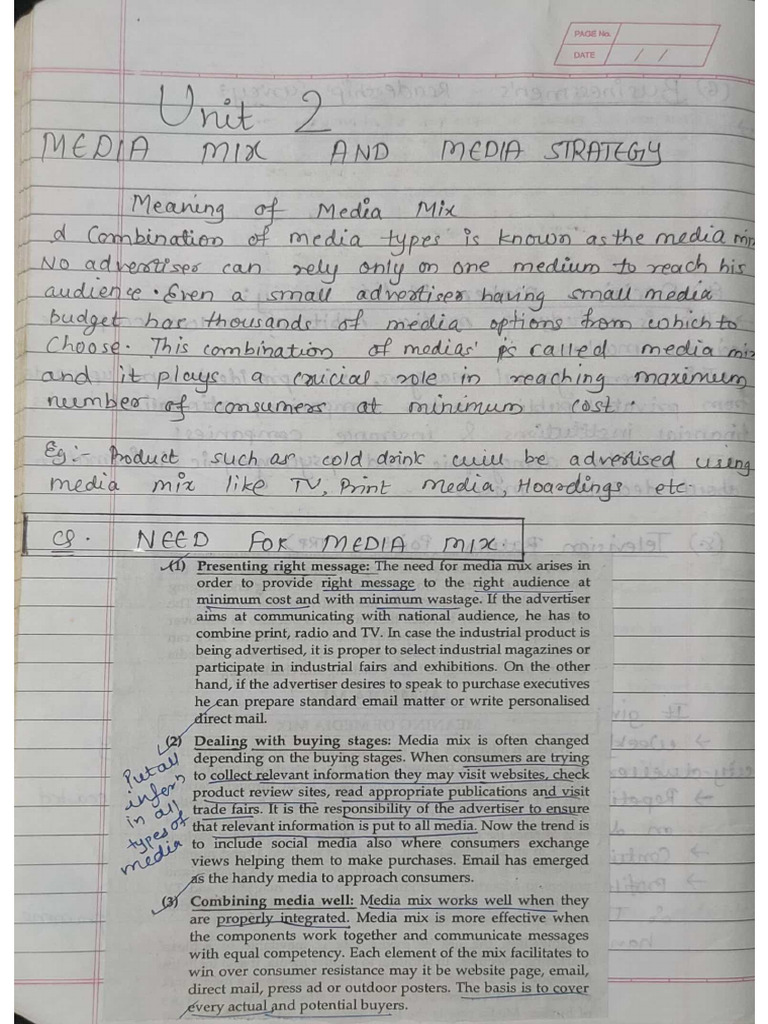 PAGE No.
DATE / /
Unit 2
MEDIA MIX AND MEDIA STRATEGY
Meaning of Media Mix
A Combination of media types is known as the media mix
No advertiser can rely only on one medium to reach his
audience. Even a small advertiser having small media
budget has thousands of media options from which to
Choose. This combination of medias is called media mix
and it plays a crucial role in reaching maximum
number of consumers at minimum cost.
Eg:- Product such as cold drink will be advertised using
media mix like TV, Print Media, Hoardings etc.
NEED FOR MEDIA MIX.
(1) Presenting right message: The need for media mix arises in
order to provide right message to the right audience at
minimum cost and with minimum wastage. If the advertiser
aims at communicating with national audience, he has to
combine print, radio and TV. In case the industrial product is
being advertised, it is proper to select industrial magazines or
participate in industrial fairs and exhibitions. On the other
hand, if the advertiser desires to speak to purchase executives
he can prepare standard email matter or write personalised
direct mail.
(2) Dealing with buying stages: Media mix is often changed
depending on the buying stages. When consumers are trying
to collect relevant information they may visit websites, check
product review sites, read appropriate publications and visit
trade fairs. It is the responsibility of the advertiser to ensure
that relevant information is put to all media. Now the trend is
to include social media also where consumers exchange
views helping them to make purchases. Email has emerged
as the handy media to approach consumers.
Put all
inform
in all
types of
media
(3) Combining media well: Media mix works well when they
are properly integrated. Media mix is more effective when
the components work together and communicate messages
with equal competency. Each element of the mix facilitates to
win over consumer resistance may it be website page, email,
direct mail, press ad or outdoor posters. The basis is to cover
every actual and potential buyers.